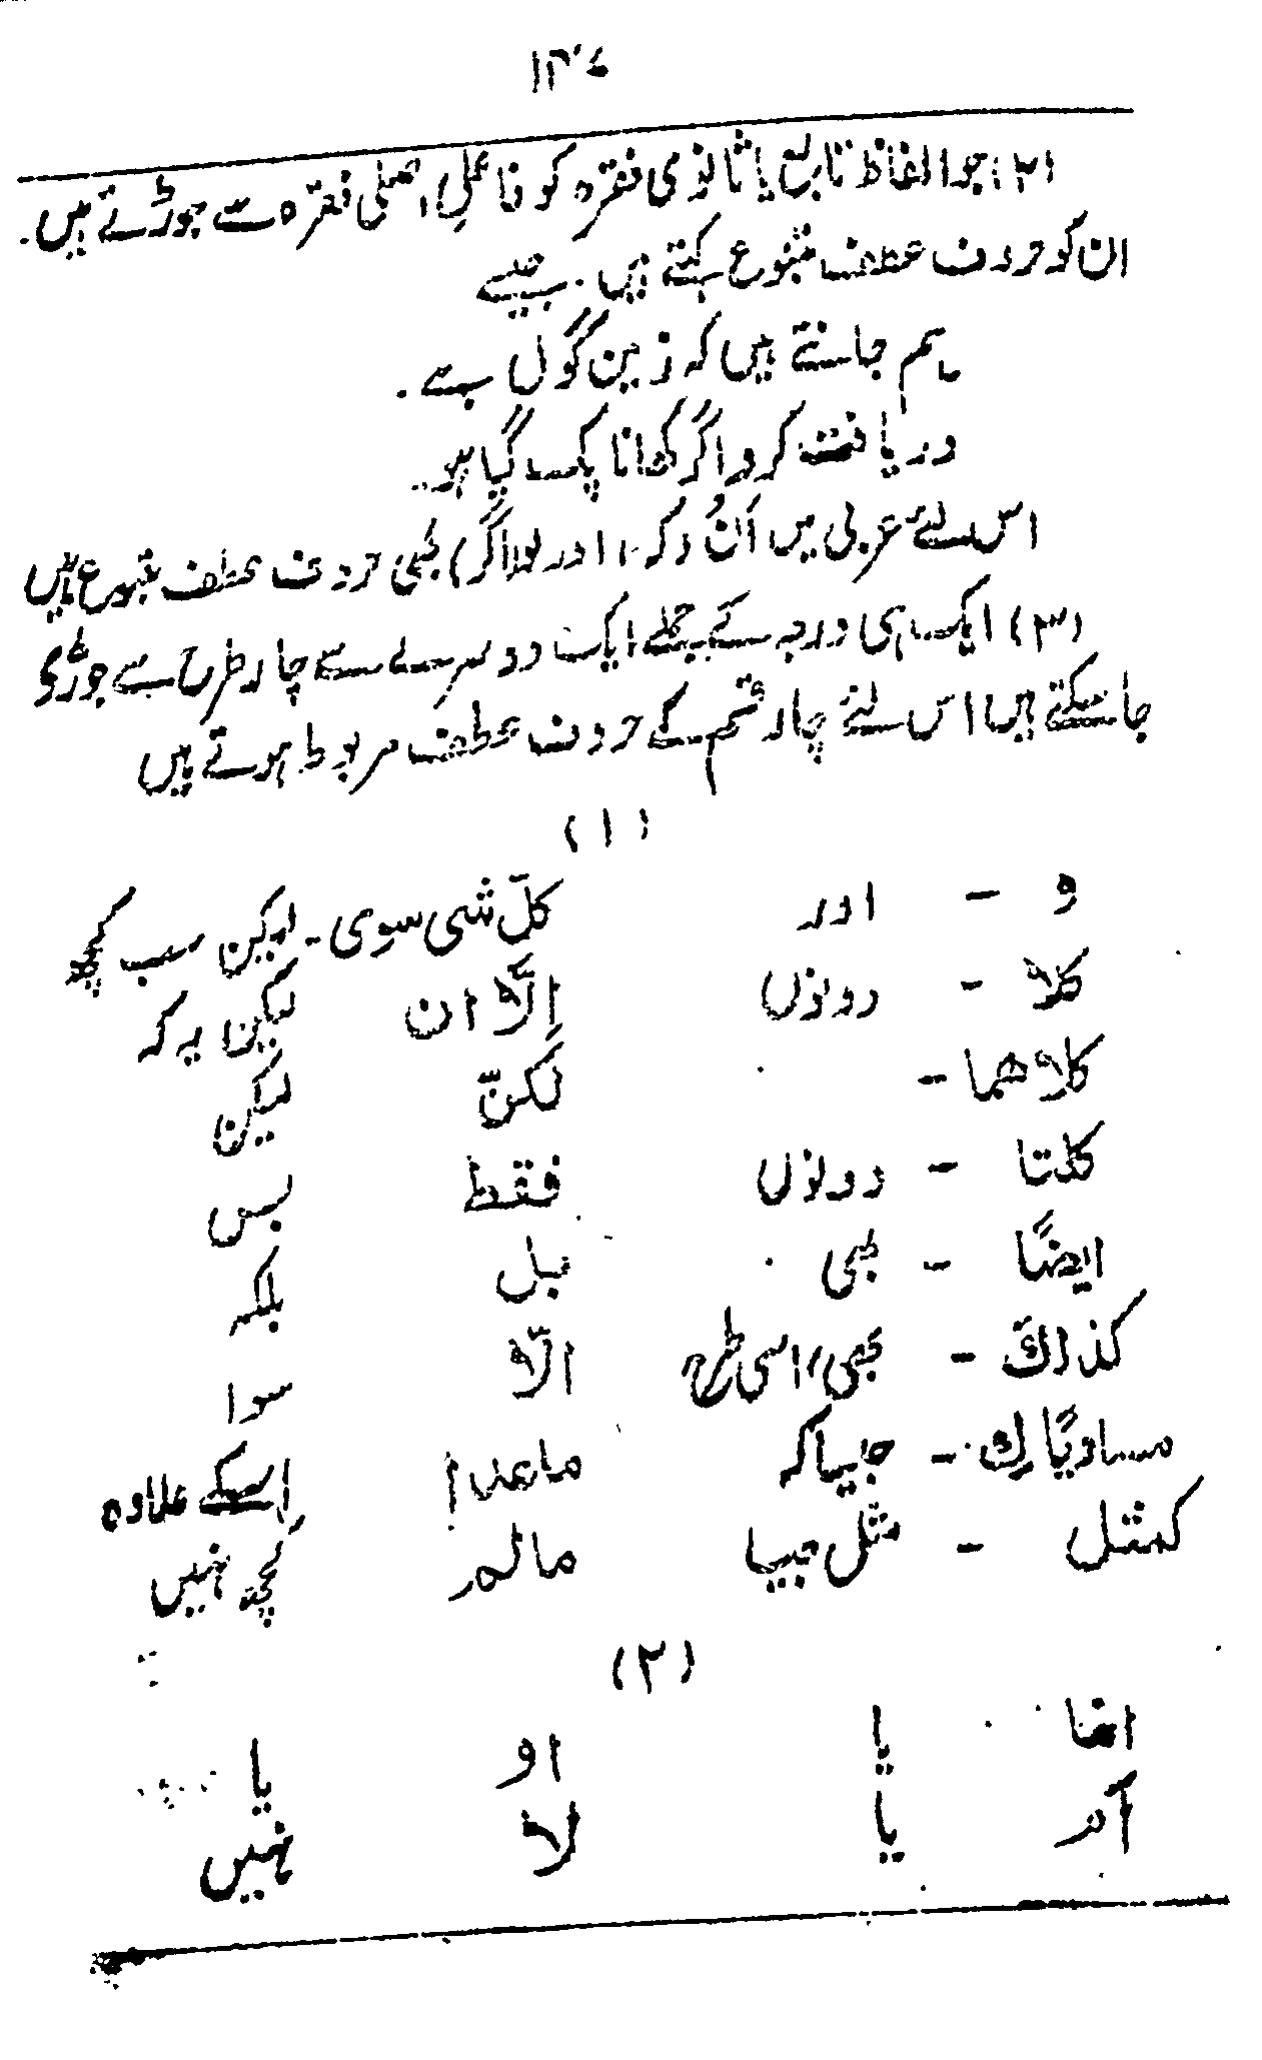 (۲) جو الفاظ تابع یا ثانوی فقرہ کو فاعلی، اصلی فقرہ سے جوڑتے ہیں.
ان کو حروف عطف متبوع کہتے ہیں. جیسے
ہم جانتے ہیں کہ زمین گول ہے.
دریافت کرو اگر کھانا پک گیا ہو.
اس لئے عربی میں اَنُ (کہ) اور لو (اگر) بھی حروف عطف متبوع ہیں
(۳) ایک ہی درجہ کے جملے ایک دوسرے سے چار طرح سے جوڑی
جا سکتے ہیں اس لئے چار قسم کے حروف عطف مربوط ہوتے ہیں
(۱)
و - اور کلّ شی سوی - لیکن سب کچھ
کلا - دونوں اِلَّا ان لیکن یہ کہ
کلاھما - لٰکنّ لیکن
کلتا - دونوں فقط بس
ایضًا - بھی بل بلکہ
کذالکَ - بھی، اسی طرح الّا سوا
مساویًا لِك - جیسا کہ ماعدا اِسکے علاوہ
کمثل - مثل جیسا مالم کچھ نہیں
(۲)
یا او یا
یا لا نہیں